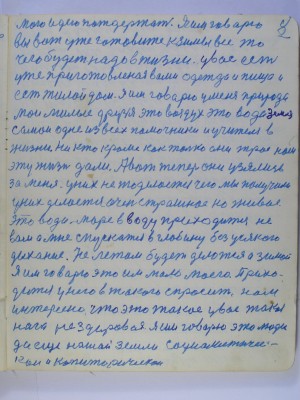 мого идею подержат. Я им говарю
вы вот уже готовите к зимы все то
чего будет надо в жизни. у вас есть
уже приготовленая вами одежда и пища и
есть жилой дом. Я им говорю у меня природа
мои милые друзя это воздух это вода земля
самои одне из всех помочники и учителя в
жизни ни кто кроме как только они трое нам
эту жизн дали. А вот теперь они взялися
за меня. у них не
у них делается очен страшное но живое
это вода море в воду приходится не
вам а мне спускатся в глобину без усякого
дыхание. Не летом будет делотся а зимой
Я им говарю это им мало моего. Прихо-
дится у него в такого спросит, нам
интересно, что это такое у вас такая
нага нездоровая я им говарю это люди
да еще нашей земли Социалистичес-
кой и Капиторической